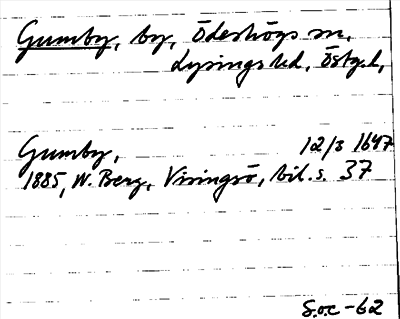 Gumby, by, Ödeshögs sn,
Lysings hd, Östg.l,
Gumby, 12/3 1647
1885, W. Berg, Visingsö, bil. s. 37
S.o.c -62